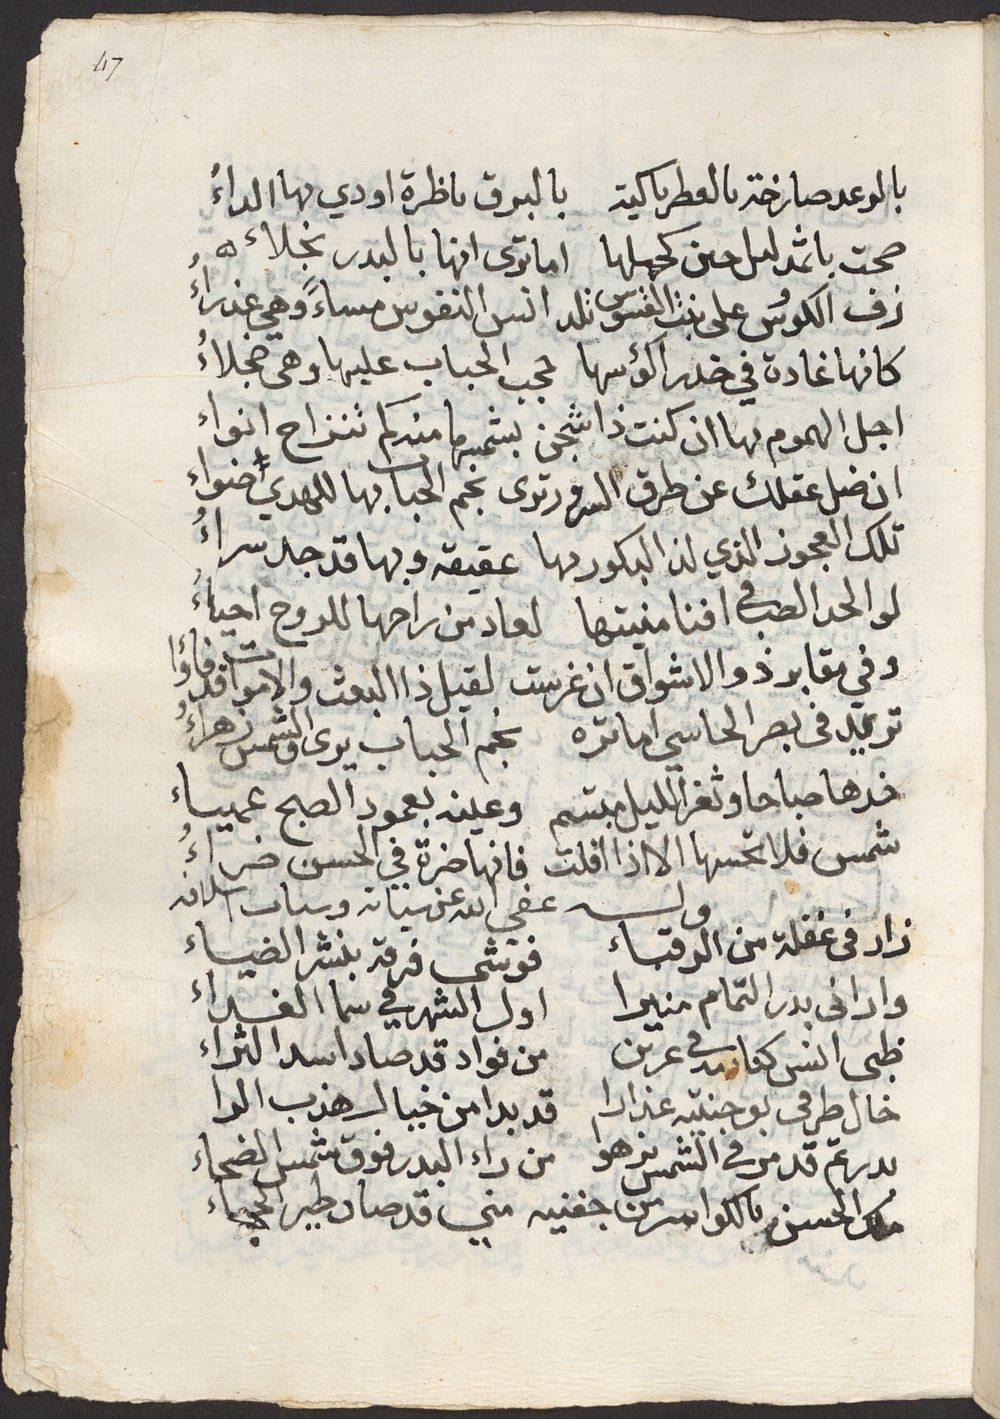 47
بالرعد صارخة بالقطر باكية بالبرق ناظرة اودي بها الداءُ
صحت باثمد ليل حين كحلها اما ترى انها بالبدر نجلاءُ
زف الكوس على بنت القسوس تلد انس النفوس مساءً وهي عذراءُ
كانها غادة في خدر اكؤسها حجب الحباب عليها وهي حجلاءُ
اجل الهموم بها ان كنت ذا شجن بشمسها منك تنزاح انواء
ان ضل عقلك عن طرق السرور ترى نجم الحباب بها للمهدي اضواء
تلك العجوز الذي لذ البكور بها عقيقة وبها قد جد سراءُ
لو الحد الصب في افنا منيتها لعاد من راحها للروح احياءُ
وفي مقابر ذو الاشواق ان غرست لقيل ذا البعث والاموات قد فاؤا
تزيد في بصر الحاسي اما تره نجم الحباب يرى والشمس زهراءُ
خذها صباحا وثغر الليل مبتسم وعينه بعمود الصبح عمياء
شمس فلا تحسها الا اذا افلت فانها ضرة في الحسن ضراءُ
وله عفى الله عن سيئاته وسيات اسلافه
زار في غفلة من الرقباء فوشى فرقه بنشر الضياء
واراني بدر التمام منيرا اول الشهر في سما الغبراء
ظبى انس في عرين من فواد قد صاد اسد الثراء
خال طرفي بوجنتيه عذارا قد بدا من خيال هذب الرا
بدر تم قد مر في الشمس يزهو من راء البدر فوق شمس الضحاء
ملك الحسن بالكواسر من جفنيه مني قد صاد طير